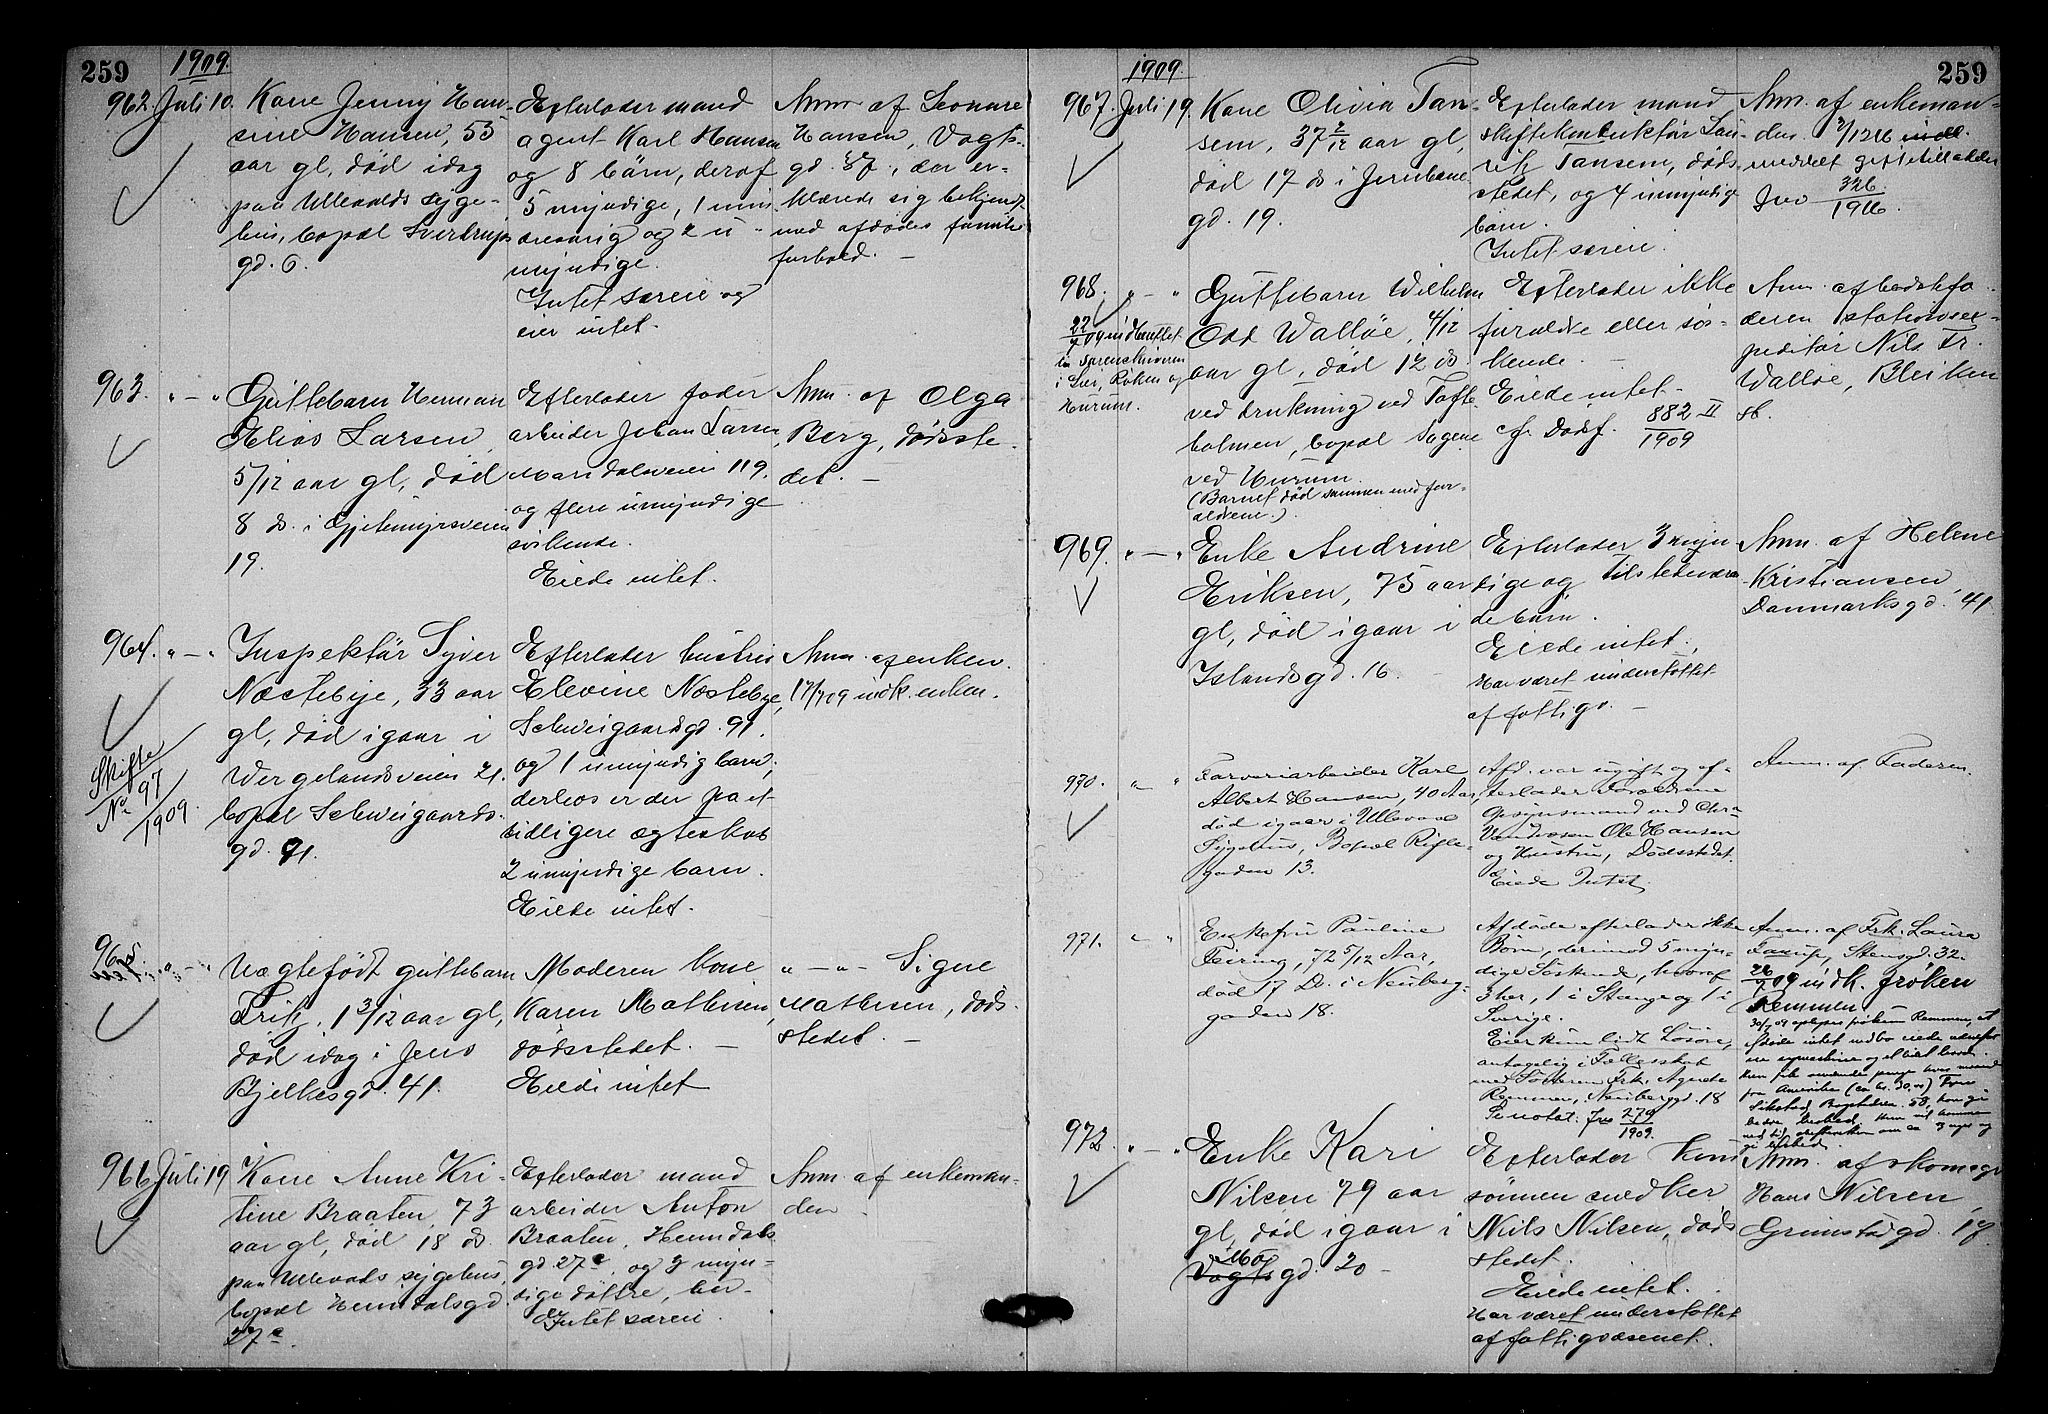 259
1909.
962. Juli 10. Kone Jenny Han-
sine Hansen, 55
aar gl, död idag
paa Ullevolds syge-
hus, bopæl Sverdrups
gd. 6.
Efterlader mand
agent Karl Hansen
og 8 börn, deraf
5 myndige, 1 min
dreaarig og 2 u-
myndige.
Intet særeie og
eier intet.
Anm. af Leonore
Hansen, Vogts-
gd. 37, der er-
klærede sig bekjendt
med afdödes familie
forhold. —
963. " — " Guttebarn Herman
Elias Larsen,
5/12 aar gl, död
8 ds. i Gjetemyrsveien
19.
Efterlader fader
arbeider Johan Larsen,
Maridalsveien 119.
og flere umyndige
söskende.
Eiede intet.
Anm. af Olga
Berg, dödsste-
det. —
964. " — " Inspektör Syver
Næstebye, 33 aar
gl, död igaar i
Wergelandsveien 21.
bopæl Schweigaards-
gd. 91.
Skifte
No 97
1909.
Efterlader hustru
Elevine Næstebye,
Schweigaardsgd. 91.
og 1 umyndig barn,
derhos er der fra et
tidligere ægteskab
2 umyndige barn.
Eiede intet.
Anm. af enken.
17/7 09 indk. enken.
965. " — " Uægtefödt guttebarn
Erik, 1 3/12 aar gl,
död idag i Jens
Bjelkesgd. 41.
Moderen kone
Karen Mathisen,
dödsstedet. —
Eiede intet
" — " Signe
Mathisen, döds-
stedet. —
966 Juli 19 Kone Anne Kri-
stine Braaten, 73
aar gl, död 18 ds.
paa Ullevolds sygehus,
bopæl Heimdalsgd.
27 c.
Efterlader mand
arbeider Anton
Braaten, Heimdals
gd 27 c, og 3 myn-
dige döttre, her.
Intet særeie.
Anm. af enkeman-
den.
259
1909.
967. Juli 19. Kone Olivia Tan-
sem, 37 2/12 aar gl,
död 17 ds i Jernbane
gd. 19.
Efterlader mand
skiftekonduktör Lau-
ritz Tansem, döds-
stedet, og 4 umyndige
barn.
Intet særeie.
Anm. af enkeman-
den. 2/12 16
meddelt giftetilladelse
Jno 326
1916.
968. " — " Guttebarn Wilhelm
Odd Walløe, 4/12
aar gl, död 12 ds.
ved drukning ved Tofte
holmen, bopæl Sagene
ved Hurum.
(Barnet död sammen med for-
ældrene.)
22/7 09 indberettet
til sorenskriveren
i Lier, Röken og
Hurum.
Efterlader ikke
forældre eller søs-
kende. —
Eiede intet.
cfr. Dödsf. 882 II
1909
Anm. af bedstefa-
deren stationsex-
peditör Nils Fr.
Walløe, Bleiken
st.
969. " — " Enke Andrine
Eriksen, 75 aar
gl, död igaar i
Islandsgd. 16.
Efterlader 3 myn
dige og tilstedeværen
de barn.
Eiede intet,
Har været understöttet
af fattigv. —
Anm. af Helene
Kristiansen
Danmarksgd. 41.
970. " — " Farveriarbeider Karl
Albert Hansen, 40 Aar,
död igaar i Ullevaal
Sygehus, Bopæl Rifle-
gaden 13.
Afd. var ugift og ef-
terlader Forældrene
Opsynsmand ved Chra
Vandvæsen Ole Hansen
og Hustru, Dödsstedet.
Eiede Intet.
Anm. af Faderen.
971. " — " Enkefru Pauline
Feiring, 72 5/12 Aar,
död 17 Ds. i Neuberg-
gaden 18.
Afdøde efterlader ikke
Børn, derimod 5 myn-
dige Söskende, hvoraf
3 her, 1 i Stange og 1 i
Sverige.
Eier kun lidt Lösöre,
antagelig i Fællesskab
med Søsteren Frk. Agnete
Remmen, Neuberggd. 18
Se notat: Jno 279
1909.
Anm. af Frk. Laura
Stensgd. 32.
26/7 09 indk. fröken
Remmen.
30/7 09 oplyser fröken Remmen, at
afdøde intet indbo eiede undtagen
en symaskine og et lidet bord.
972. " — " Enke Kari
Nilsen 79 aar
gl, död igaar i
Vogts gd. 20 —
Efterlader kun
sönnen snedker
Nils Nilsen, döds
stedet.
Eiede intet.
Har været understöttet
af fattigvæsenet.
Anm. af skomagr
Hans Nilsen,
Grimstadgd. 19.